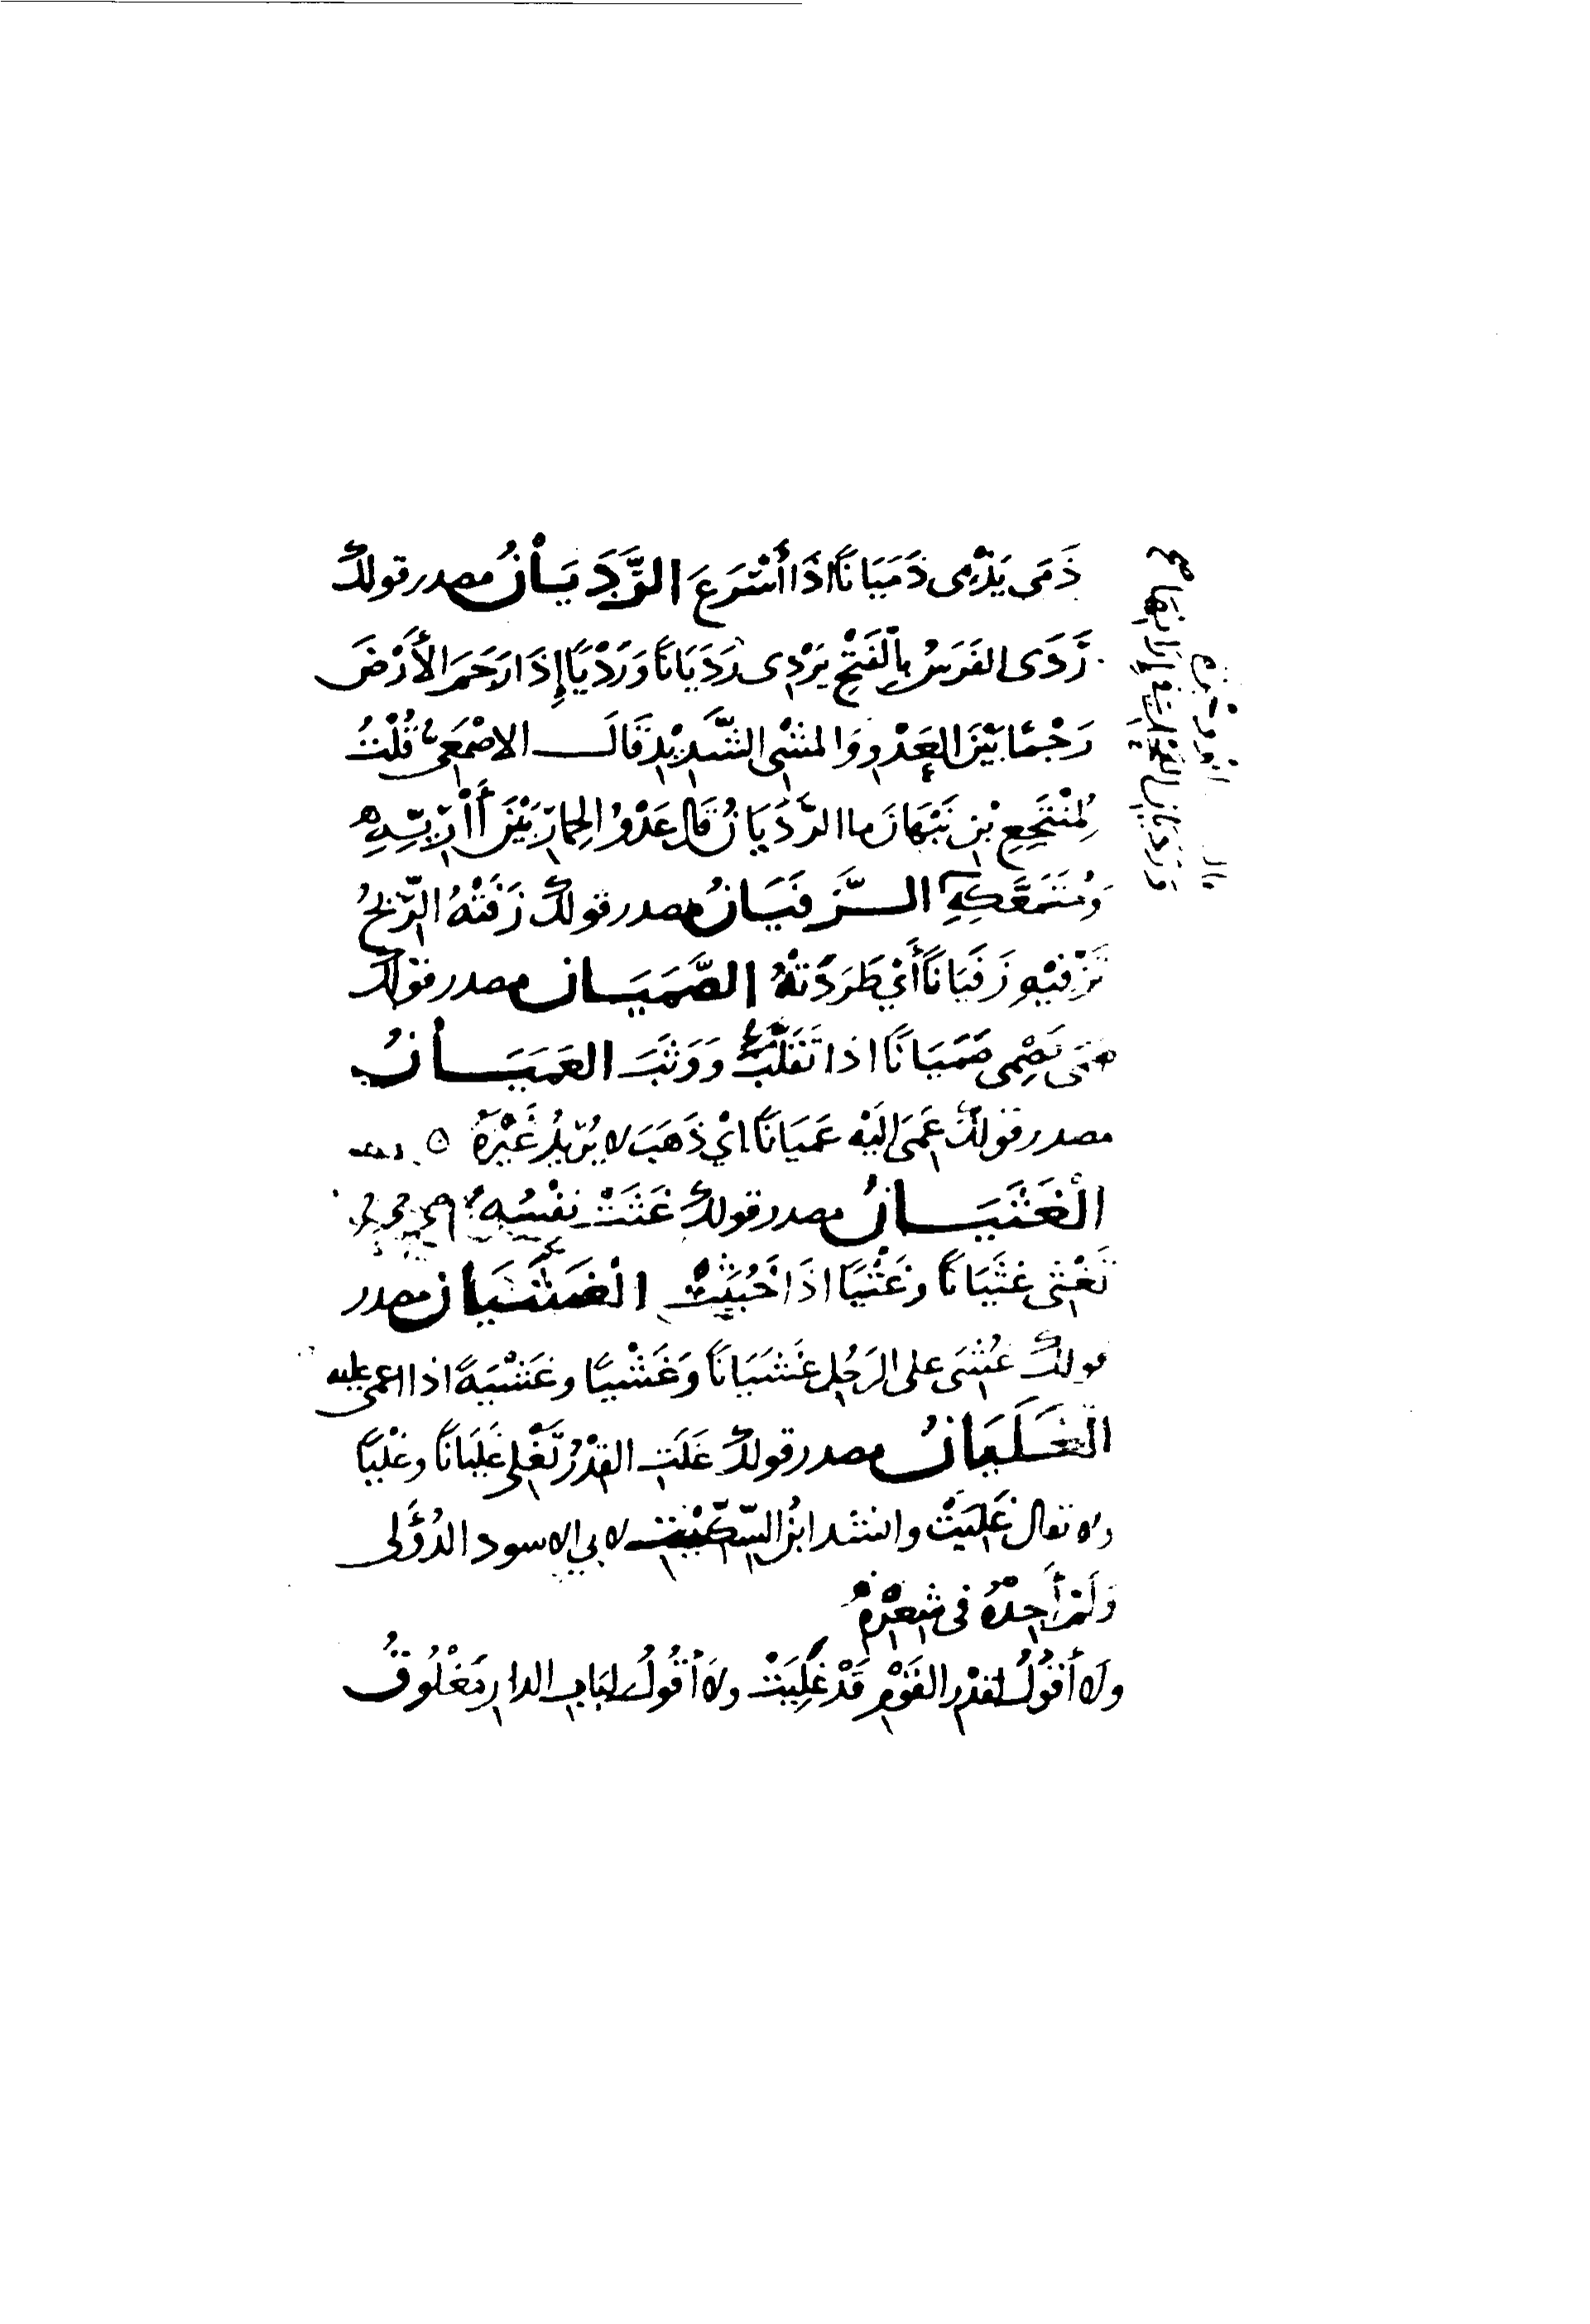 ذَمَى يَذْمِى ذَمَيَانًا اذَا أَسْرَعَ الرَّدَيَانُ مصدر قولك
رَدَى الفَرَسُ بِالْفَتْحِ يَرْدِى رَدَيَانًا وَرَدْيًا إِذَا رَجَمَ الأَرْضَ
رَجْمًا بَيْنَ العَدْوِ وَالمشْىِ الشَّدِيْدِ قَالَ الاصْمَعِىُّ قُلْتُ
لِمُنْتَجِعِ بْنِ نَبْهَانَ ما الرَّدَيَانُ قَالَ عَدْوُ الحِمَارِ بَيْنَ أَارِيِّهِ
وَمُتَمَعَّكِهِ الزَّفَيَانُ مصدر قولك زَفَتْهُ الرِّيْحُ
تَزْفِيْهِ زَفَيَانًا أَيْ طَرَدَتْهُ الصَّمَيَان مصدر قولك
صَمَى يَصْمِى صَمَيَانًا اذا تَقَلَّبَ وَوَثَبَ العَمَيَانُ
مصدر قولك عَمَى إِلَيْهِ عَمَيَانًا ايْ ذَهَبَ لا يُرِيْدُ غَيْرَهُ
الْغَثَيَانُ مصدر قولك غَثَتْ نَفْسُهُ
تَغْثِى غَثَيَانًا وغَثْيًا اذَا خَبُثَتْ الْغَشَيَان مصدر
قولك غُشِىَ على الرَجُلِ غَشَيَانًا وَغَشْيًا وغَشْيَةً اذا اغمى عليه
الغَلَيَانُ مصدر قولك غَلَتِ القِدْرُ تَغْلِى غَلَيَانًا وغَلْيًا
ولا تقال غَلِيَتْ وانشد ابنُ السِّكِّيْتِ لابي الاسود الدُؤَلى
وَلَمْ أَجِدْهُ فى شِعْرِهِ
ولا أَقُولُ لِقِدْرِ القَوْمِ قَدْ غَلِيَتْ ولا أَقُولُ لِبَابِ الدارِ مَغْلُوقُ